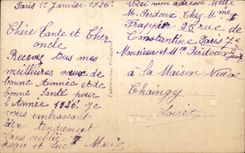 Paris 1er Janvier 1936.
Chère Tante et Cher
oncle
Recevez tous mes
meilleures vœux de
bonne Année et de
bonne Santé pour
l'Année 1936! Je
vous embrassant
bien tendrement
Sans oublier
Roger et Luc Marie
Voici mon adresse Melle
M. Perdoux Chez Mme
Frappier 25 rue de
Constantine Paris 7e
Monsieur et Mme Perdoux
à la Maison Neuve
Chaingy
Loiret